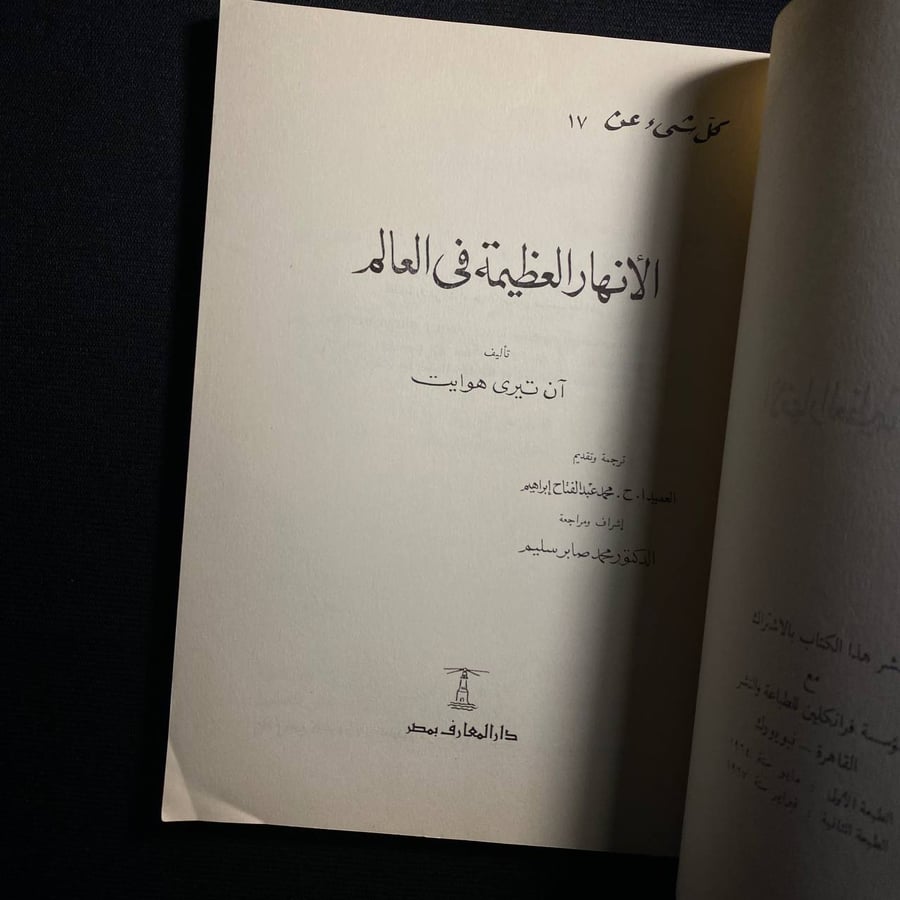 كل شىء عن ١٧
الأنهار العظيمة فى العالم
تأليف
آن تيرى هوايت
ترجمة وتقديم
العميد ا . ح . محمد عبد الفتاح إبراهيم
إشراف ومراجعة
الدكتور محمد صابر سليم
دار المعارف بمصر
هذا الكتاب بالاشتراك
مع
فرانكلين للطباعة والنشر
القاهرة – نيويورك
الطبعة الأولى : مايو سنة ١٩٦٤
الطبعة الثانية : فبراير سنة ١٩٦٧